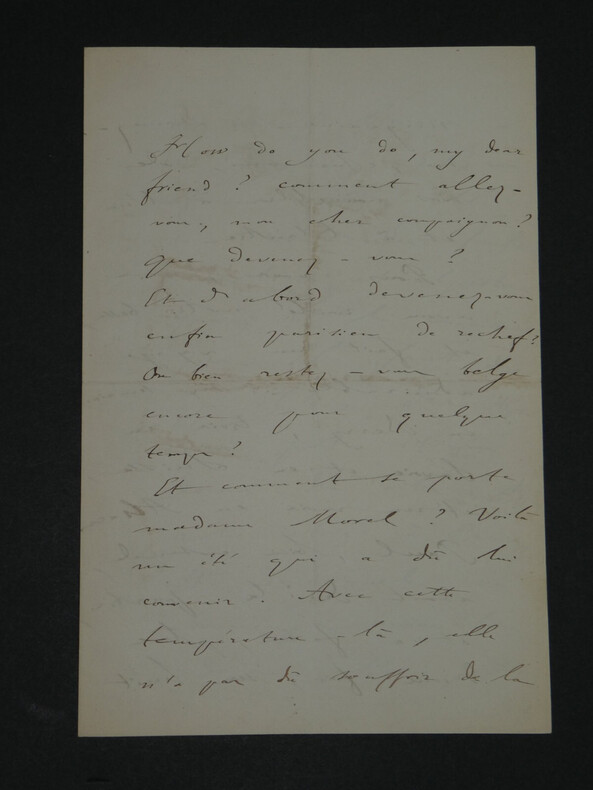 How do you do, my dear
friend ? comment allez-
vous, mon cher compaignon ?
que devenez-vous ?
Et d'abord devenez-vous
enfin parisien de rechef ?
Ou bien restez-vous belge
encore pour quelque
temps ?
Et comment se porte
madame Morel ? Voilà
un été qui a dû lui
convenir. Avec cette
température-là, elle
n'a pas dû souffrir de la